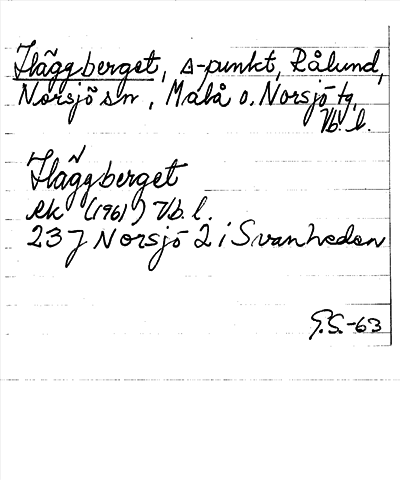 Fläggberget, △-punkt, Rålund,
Norsjö sn, Malå o. Norsjö tg,
Vb. l.
Fläggberget
ek (1961) Vb. l.
23 J Norsjö 2 i Svanheden
G.S.-63